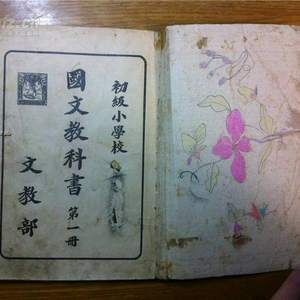 初級小學校
國文教科書 第一冊
文教部